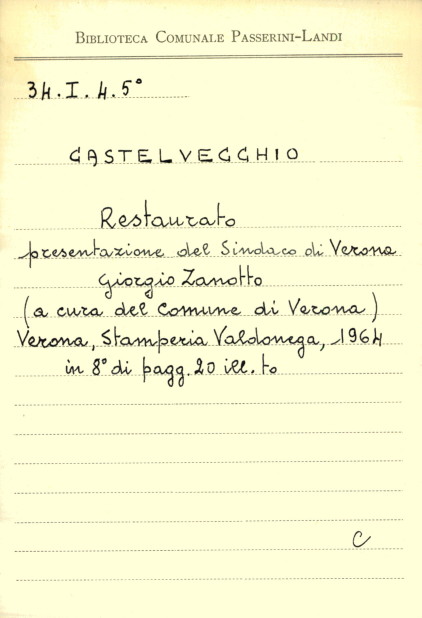 BIBLIOTECA COMUNALE PASSERINI-LANDI
34.I.4.5°
CASTELVECCHIO
Restaurato
presentazione del Sindaco di Verona
Giorgio Zanotto
(a cura del Comune di Verona)
Verona, Stamperia Valdonega, 1964
in 8° di pagg. 20 ill.to
C